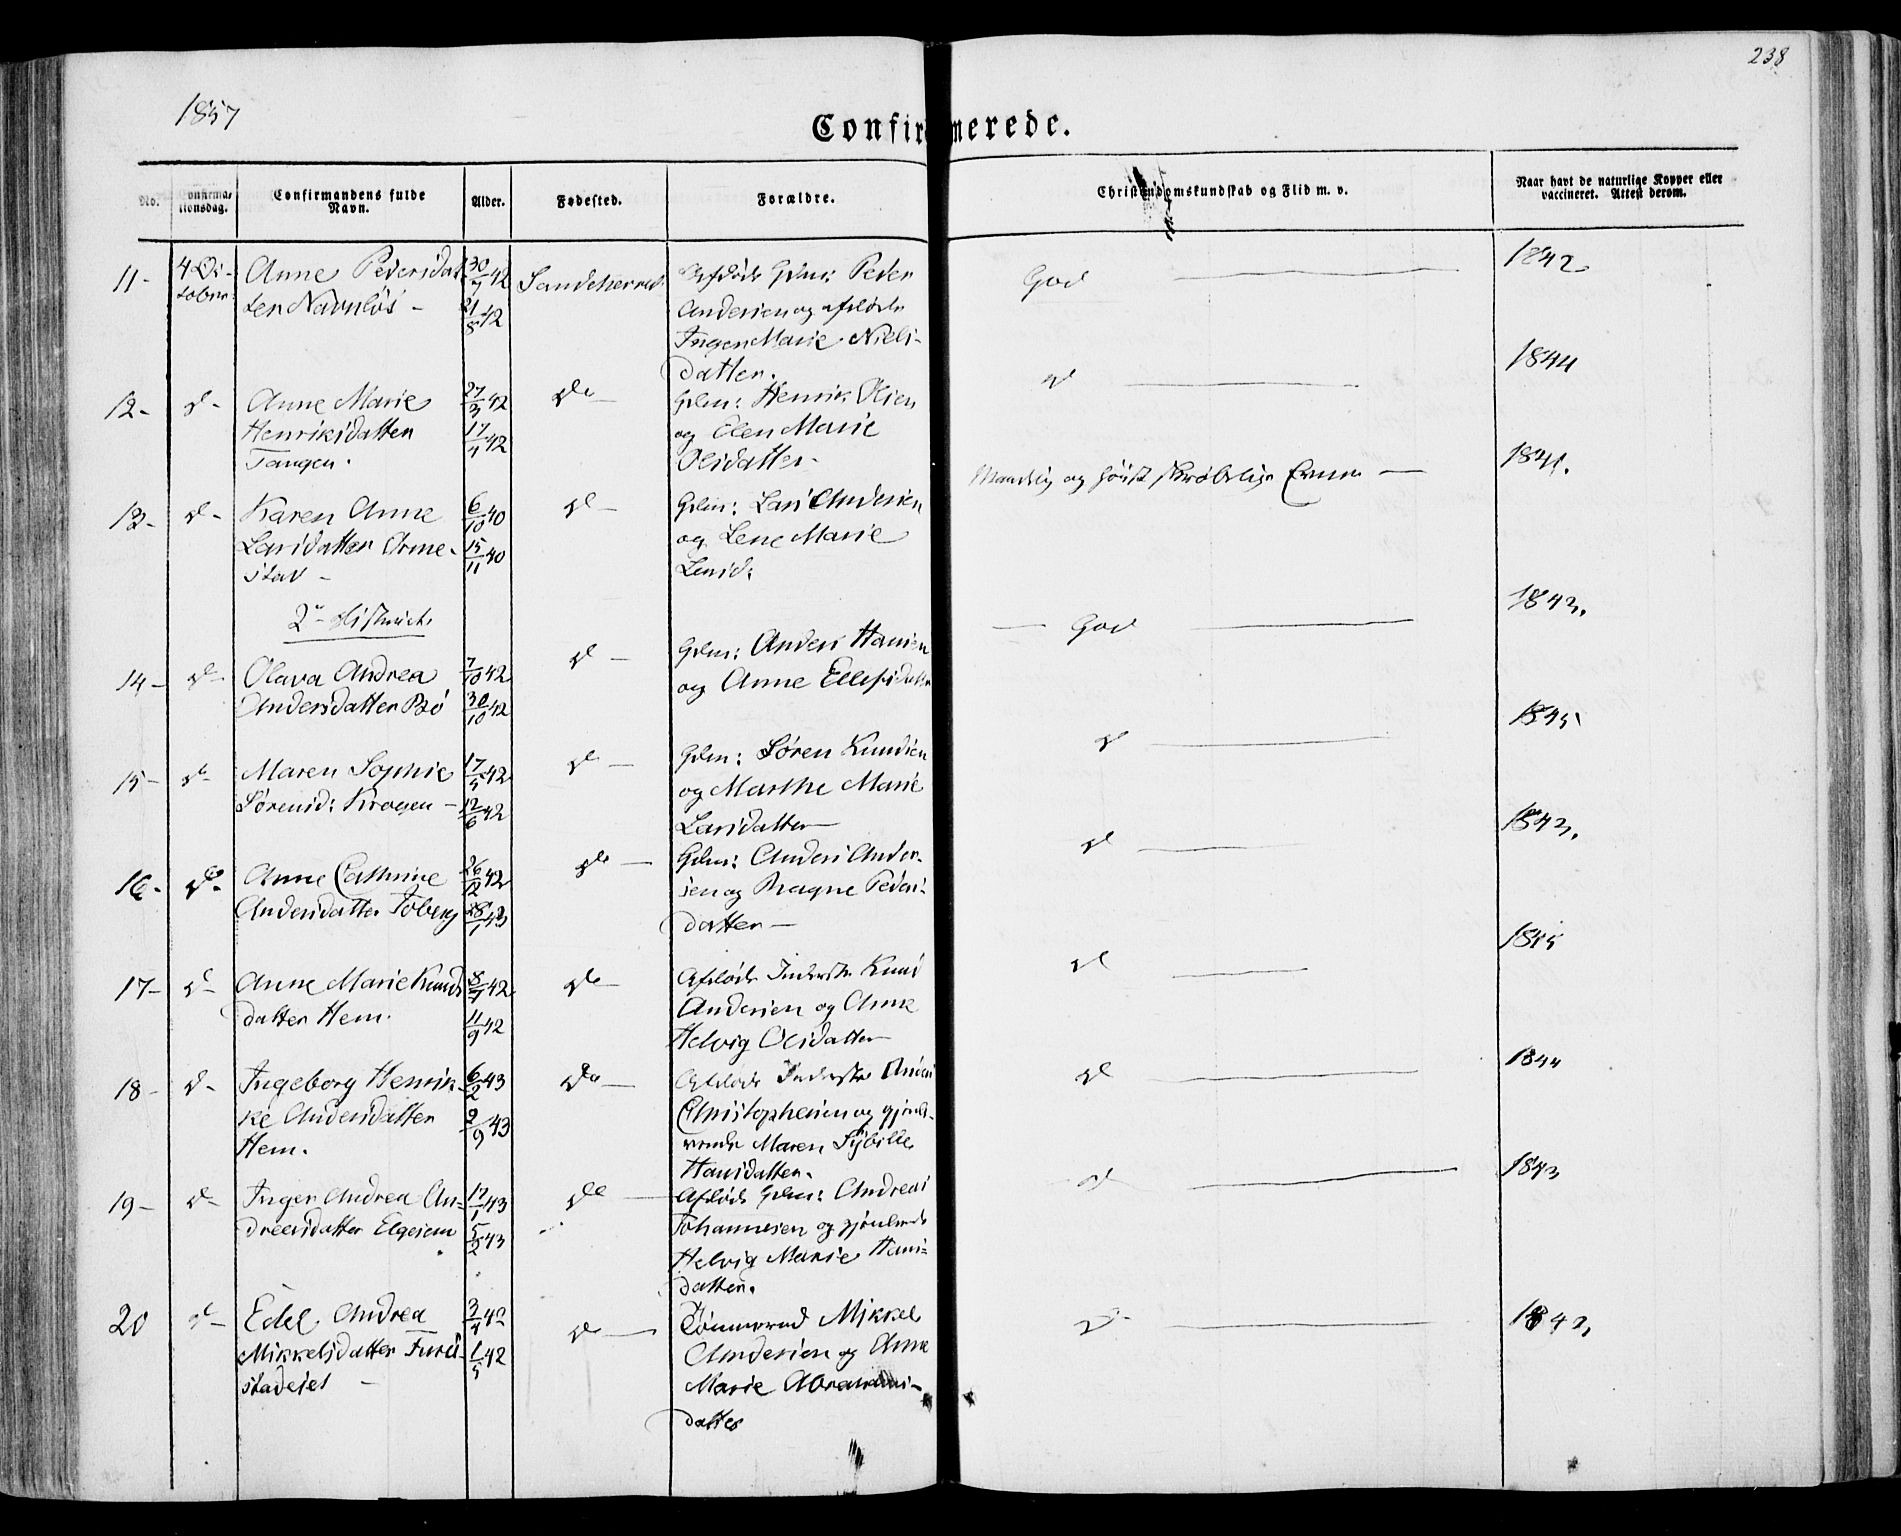 238
1857
Confirmerede.
No. Confirmationsdag. Confirmandens fulde Navn. Alder. Fødested. Forældre. Christendomskundskab og Flid m. v. Naar havt de naturlige Kopper eller vaccineret. Attest derom.
11- 4 Oktober Anne Pedersdatter Navnløs - 30/7 42 21/8 42 Sandeherred Afdøde Gdm: Peder Andersen og afdøde Inger Marie Nielsdatter. God 1842
12- do- Anne Marie Henriksdatter Tangen. 27/3 42 17/4 42 do- Gdm: Henrik Olsen og Elen Marie Olsdatter- do 1844
13- do- Karen Anne Larsdatter Ormestav - 6/10 40 15/11 40 do- Gdm: Lars Andersen og Lene Marie Larsd: Maadelig og høist skrøbelige Evner - 1841.
2det District
14- do- Olava Andrea Andersdatter Bø 7/10 42 30/10 42 do- Gdm: Anders Hansen og Anne Ellefsdatter God 1843.
15- do- Maren Sophie Sørensd: Kragen - 17/5 42 12/6 42 do- Gdm: Søren Knudsen og Marthe Marie Larsdatter do 1845
16- do- Anne Cathrine Andersdatter Foberg 26/12 42 28/1 43 do- Gdm: Anders Andersen og Ragne Pedersdatter- do 1843.
17- do- Anne Marie Knudsdatter Hem. 8/7 42 11/9 42 do- Afdøde Inderste Knud Andersen og Anne Helvig Olsdatter do 1845
18- do- Ingeborg Henrikke Andersdatter Hem. 6/2 43 2/9 43 do- Afdøde Inderste Anders Christophersen og gjenlevende Maren Sybille Hansdatter. do 1844
19- do- Inger Andrea Andreasdatter Elgesem 17/1 43 5/2 43 do- Afdøde Gdm: Andreas Johannesen og gjenlevende Helvig Marie Hansdatter. do 1843
20 do- Edel Andrea Mikkelsdatter Furustadeiet - 3/4 42 1/5 42 do- Tømmermd Mikkel Andersen og Anne Marie Abrahamsdatter do 1842,